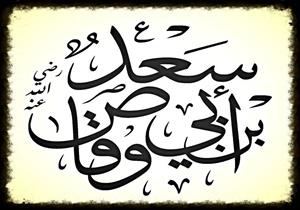 سَعْد
بن أبي وقاص
رضي
الله
عنه